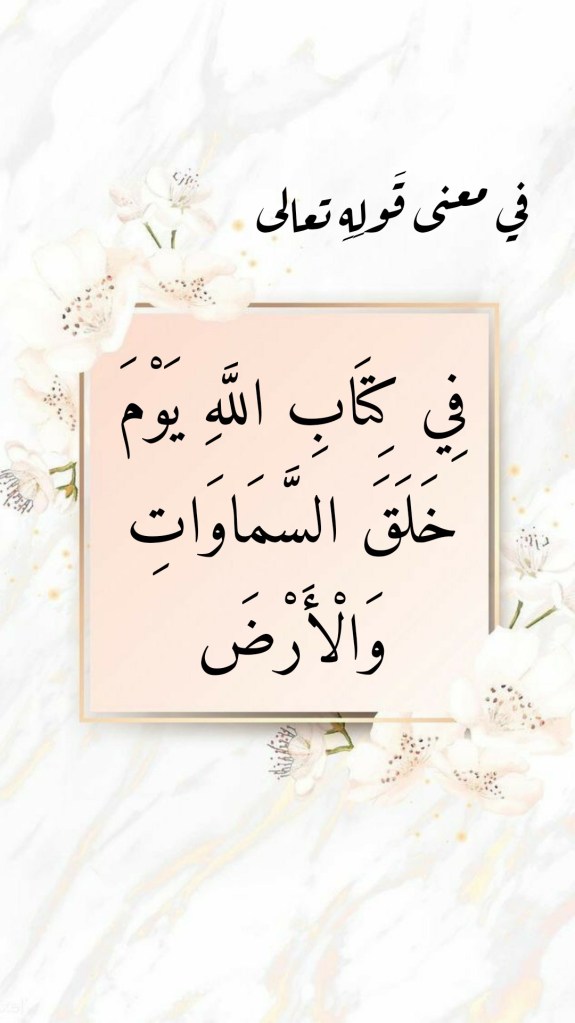 في معنى قَولِهِ تعالى
فِي كِتَابِ اللَّهِ يَوْمَ
خَلَقَ السَّمَاوَاتِ
وَالْأَرْضَ